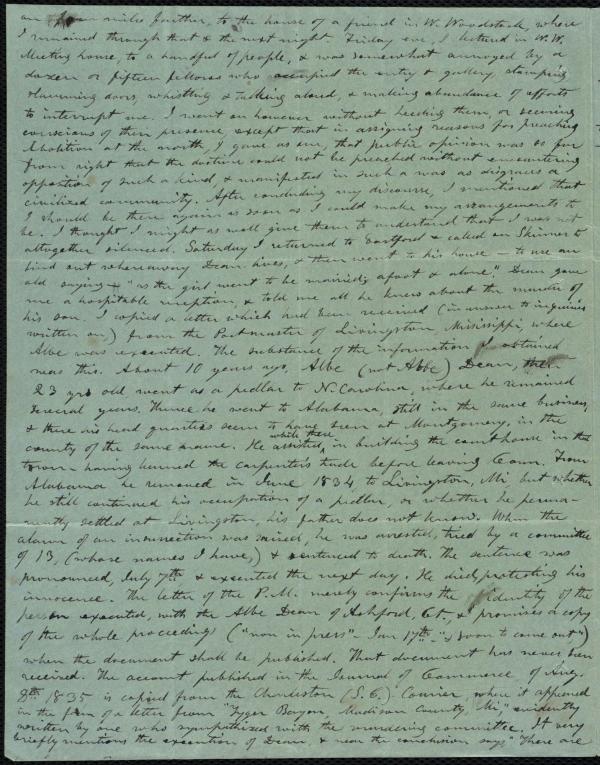 miles further, to the house of a friend in W. Woodstock, where
I remained through that & the next night. Friday eve, I lectured in W. W.
Meeting house, to a handful of people, & was somewhat annoyed by a
dozen or fifteen fellows who occupied the entry & gallery, stamping
slamming doors, whistling & talking aloud, & making abundance of efforts
to interrupt me. I went on however without heeding them, or seeming
conscious of their presence, except that in assigning reasons for preaching
Abolition at the north, I gave as one, that public opinion was so far
from right that the doctrine could not be preached without encountering
opposition of such a kind, & manifested in such a way as disgraces a
civilized community. After concluding my discourse, I mentioned that
I should be there again as soon as I could make my arrangements to
be. I thought I might as well give them to understand that I was not
altogether silenced. Saturday I returned to Eastford & called on Skinner to
find out whereaway Dean lives, & then went to his house — to use an
old saying — "as the girl went to be married; afoot & alone." Dean gave
me a hospitable reception, & told me all he knew about the murder of
his son. I copied a letter which had been received (in answer to inquiries
written on,) from the Postmaster of Livingston, Missisippi, where
Albe was executed. The substance of the information I obtained
was this. About 10 years ago, Albe (not Abbe) Dean, then
23 yrs old went as a pedlar to N. Carolina, where he remained
several years. Thence he went to Alabama, still in the same business,
& there his head quarters seem to have been at Montgomery, in the
county of the same name. He assisted, while there, in building the court house in that
town — having learned the carpenter's trade before leaving Conn. From
Alabama he removed in June 1834 to Livingston, Mi. but whether
he still continued his occupation of a pedlar, or whether he perma-
nently settled at Livingston, his father does not know. When the
alarm of an insurrection was raised, he was arrested, tried by a committee
of 13, (whose names I have,) & sentenced to death. The sentence was
pronounced, July 7th & executed the next day. He died, protesting his
innocence. The letter of the P.M. merely confirms the identity of the
person executed, with the Albe Dean of Ashford, Ct. & promises a copy
of the whole proceedings ("now in press" - Jan 17th - "& soon to come out")
when the document shall be published. That document has never been
received. The account published in the Journal of Commerce of Aug.
8th 1835 is copied from the Charleston (S.C.) Courier, where it appeared
in the form of a letter from "Tyger Bayou, Madison County, Mi," evidently
written by one who sympathized with the murdering committee. It very
briefly mentions the execution of Dean, & near the conclusion says "There are